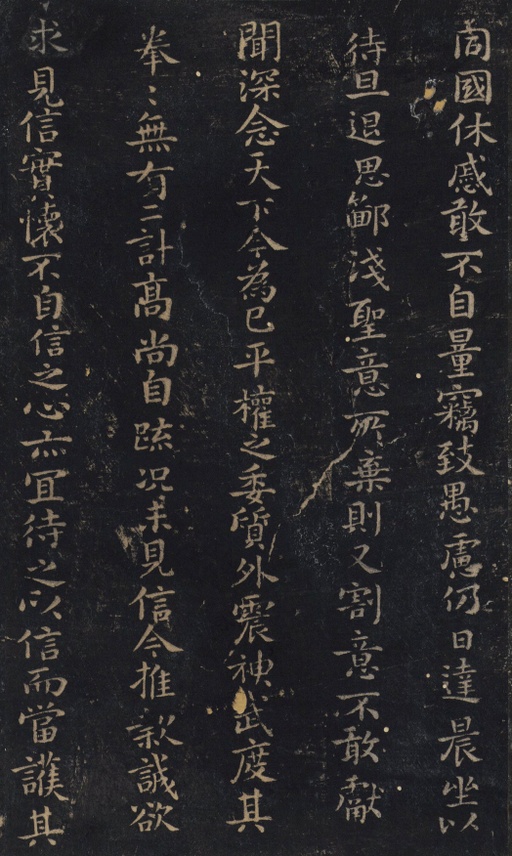 同國休慼敢不自量竊致愚慮仍日達晨坐以
待旦退思鄙淺聖意所棄則又割意不敢獻
聞深念天下今為已平權之委質外震神武度其
拳〻無有二計高尚自疏況未見信今推款誠欲
求見信實懷不自信之心亦宜待之以信而當護其